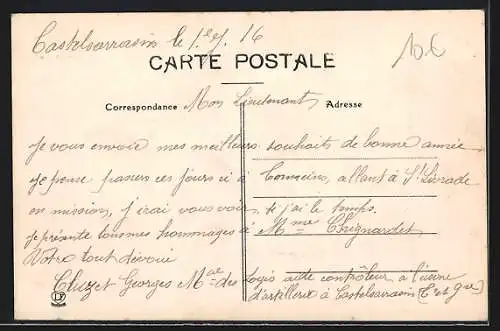 Castelsarrasin le 1er J. 16
10 c
CARTE POSTALE
Correspondance Mon Lieutenant, Adresse
Je vous envoie mes meilleurs souhaits de bonne année
Je pense passer ces jours ci à Tonneins, allant à St Livrade
en mission, j'irai vous voir, si j'ai le temps.
Je présente tous mes hommages à Mme Chignardet
Votre tout dévoué
Cluzet Georges Mal des Logis aide contrôleur à l'usine
d'artillerie à Castelsarrasin (T et Gne)